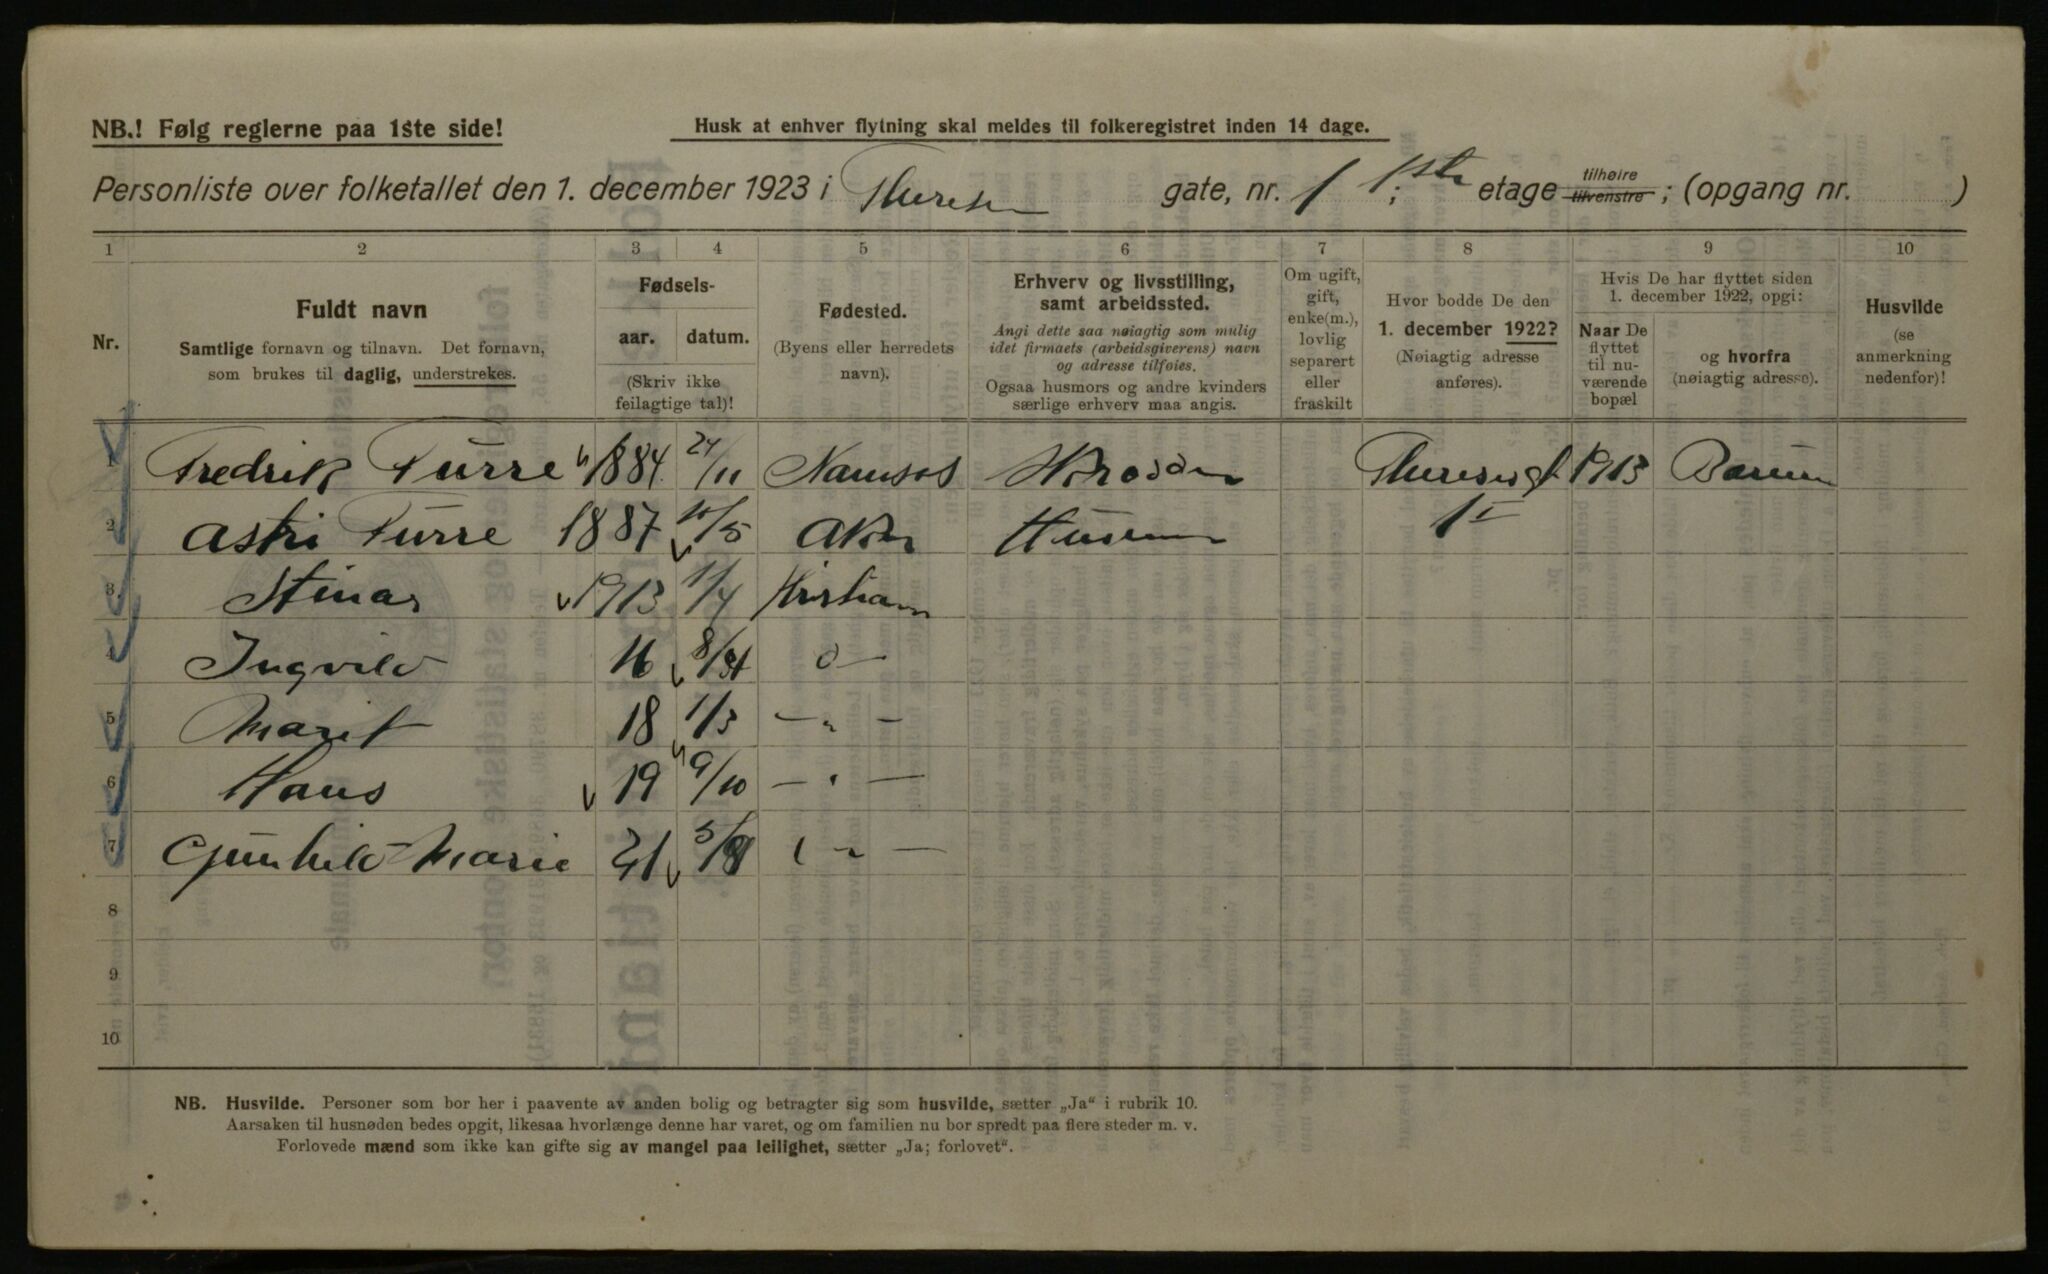 NB.! Følg reglerne paa 1ste side!
Husk at enhver flytning skal meldes til folkeregistret inden 14 dage.
Personliste over folketallet den 1. december 1923 i Theresen gate, nr. 1 1.ste etage tilhøire tilvenstre ; (opgang nr. )
1 2 3 4 5 6 7 8 9 10
Nr.
Fuldt navn
Samtlige fornavn og tilnavn. Det fornavn,
som brukes til daglig, understrekes.
Fødsels-
aar. datum.
(Skriv ikke
feilagtige tal)!
Fødested.
(Byens eller herredets
navn).
Erhverv og livsstilling,
samt arbeidssted.
Angi dette saa nøiagtig som mulig
idet firmaets (arbeidsgiverens) navn
og adresse tilføies.
Ogsaa husmors og andre kvinders
særlige erhverv maa angis.
Om ugift,
gift,
enke(m.),
lovlig
separert
eller
fraskilt
Hvor bodde De den
1. december 1922?
(Nøiagtig adresse
anføres).
Hvis De har flyttet siden
1. december 1922, opgi:
Naar De
flyttet
til nu-
værende
bopæl
og hvorfra
(nøiagtig adresse).
Husvilde
(se
anmerkning
nedenfor)!
1 Fredrik Furre 1884 24/11 Namsos Theresesgt 1913 Bærum
2 Astri Furre 1887 10/5 Aker Husmor 1 I
3 Steinar 1913 11/4 Kristiania
4 Ingvild 16 8/ d—
5 Marit 18 1/3 — „ —
6 Hans 19 9/10 — „ —
7 Gunhild-Marie 21 5/8 „ —
8
9
10
NB. Husvilde. Personer som bor her i paavente av anden bolig og betragter sig som husvilde, sætter „Ja“ i rubrik 10.
Aarsaken til husnøden bedes opgit, likesaa hvorlænge denne har varet, og om familien nu bor spredt paa flere steder m. v.
Forlovede mænd som ikke kan gifte sig av mangel paa leilighet, sætter „Ja; forlovet“.